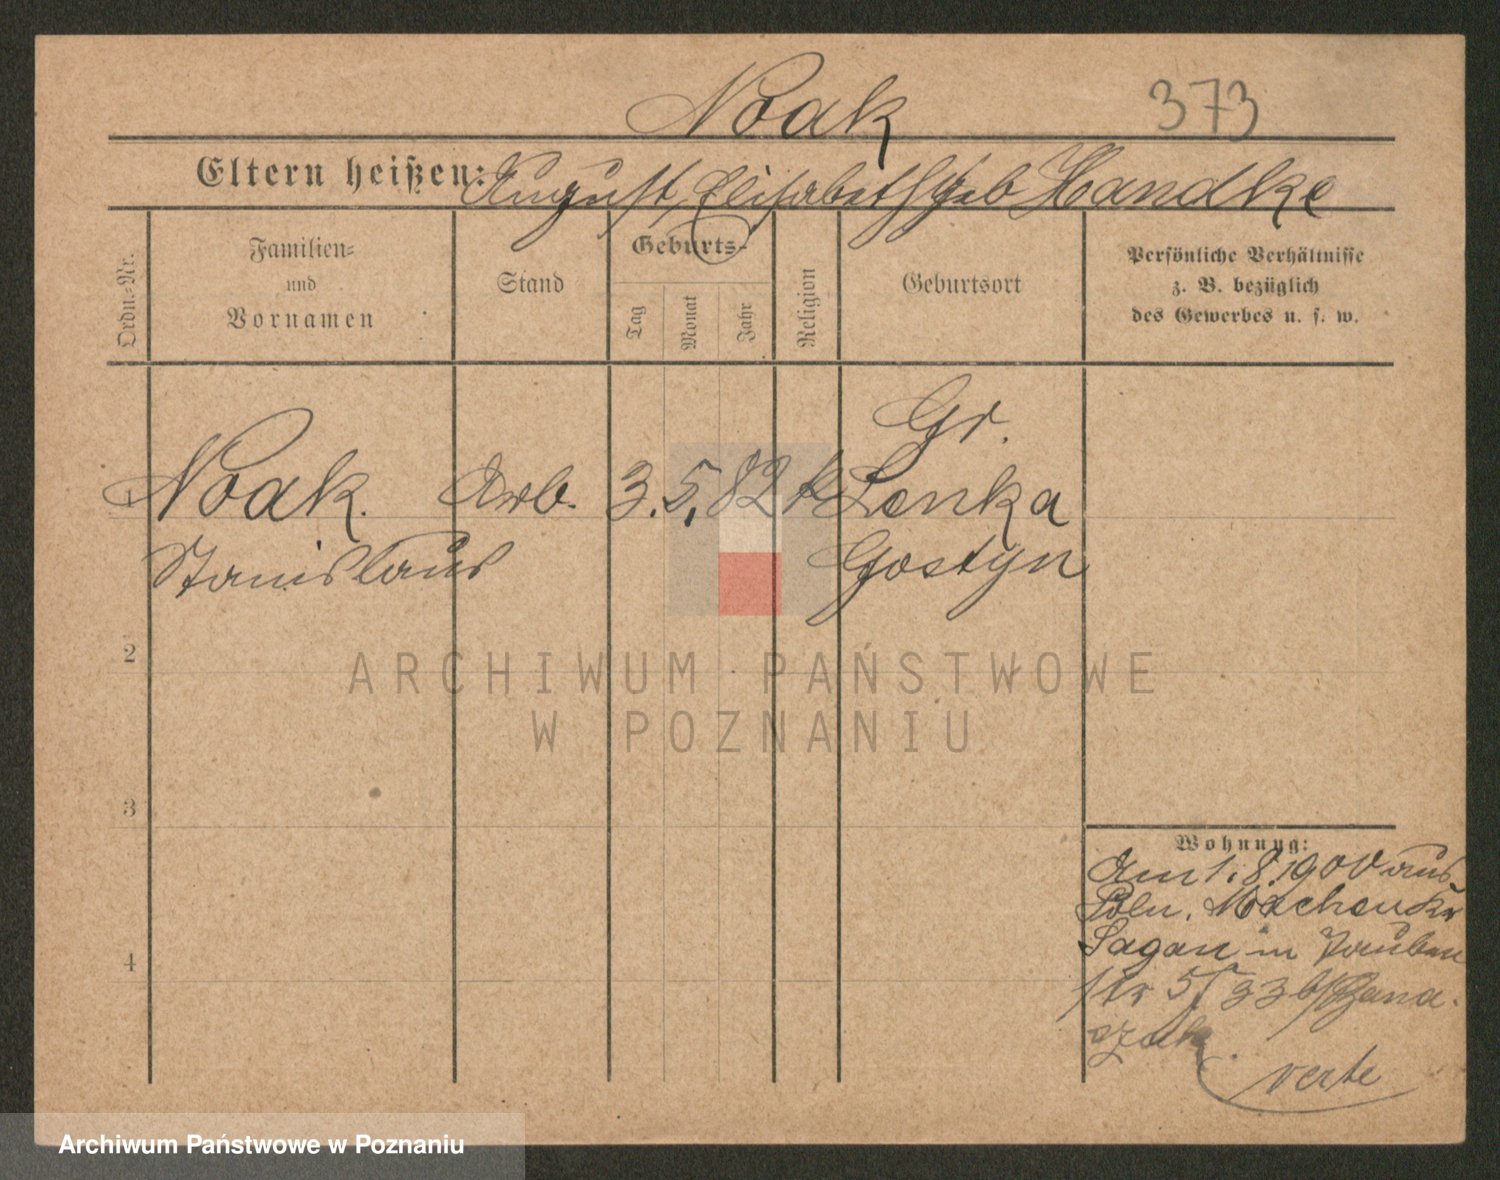 Noak
373
Eltern heißen: August, Elisabeth geb Handke
Ordn.-Nr.
Familien-
und
Vornamen
Stand
Geburts-
Tag
Monat
Jahr
Religion
Geburtsort
Persönliche Verhältnisse
z. B. bezüglich
des Gewerbes u. s. w.
Gr.
1 Noak. Arb. 3. 5. 82 k Lenka
Stanislaus Gostyn
2
ARCHIWUM PAŃSTWOWE
W POZNANIU
3
Wohnung:
Am 1. 8. 1900 aus
Poln. Machen Kr
Sagan in Tauben
4
str 5
verte
Archiwum Państwowe w Poznaniu